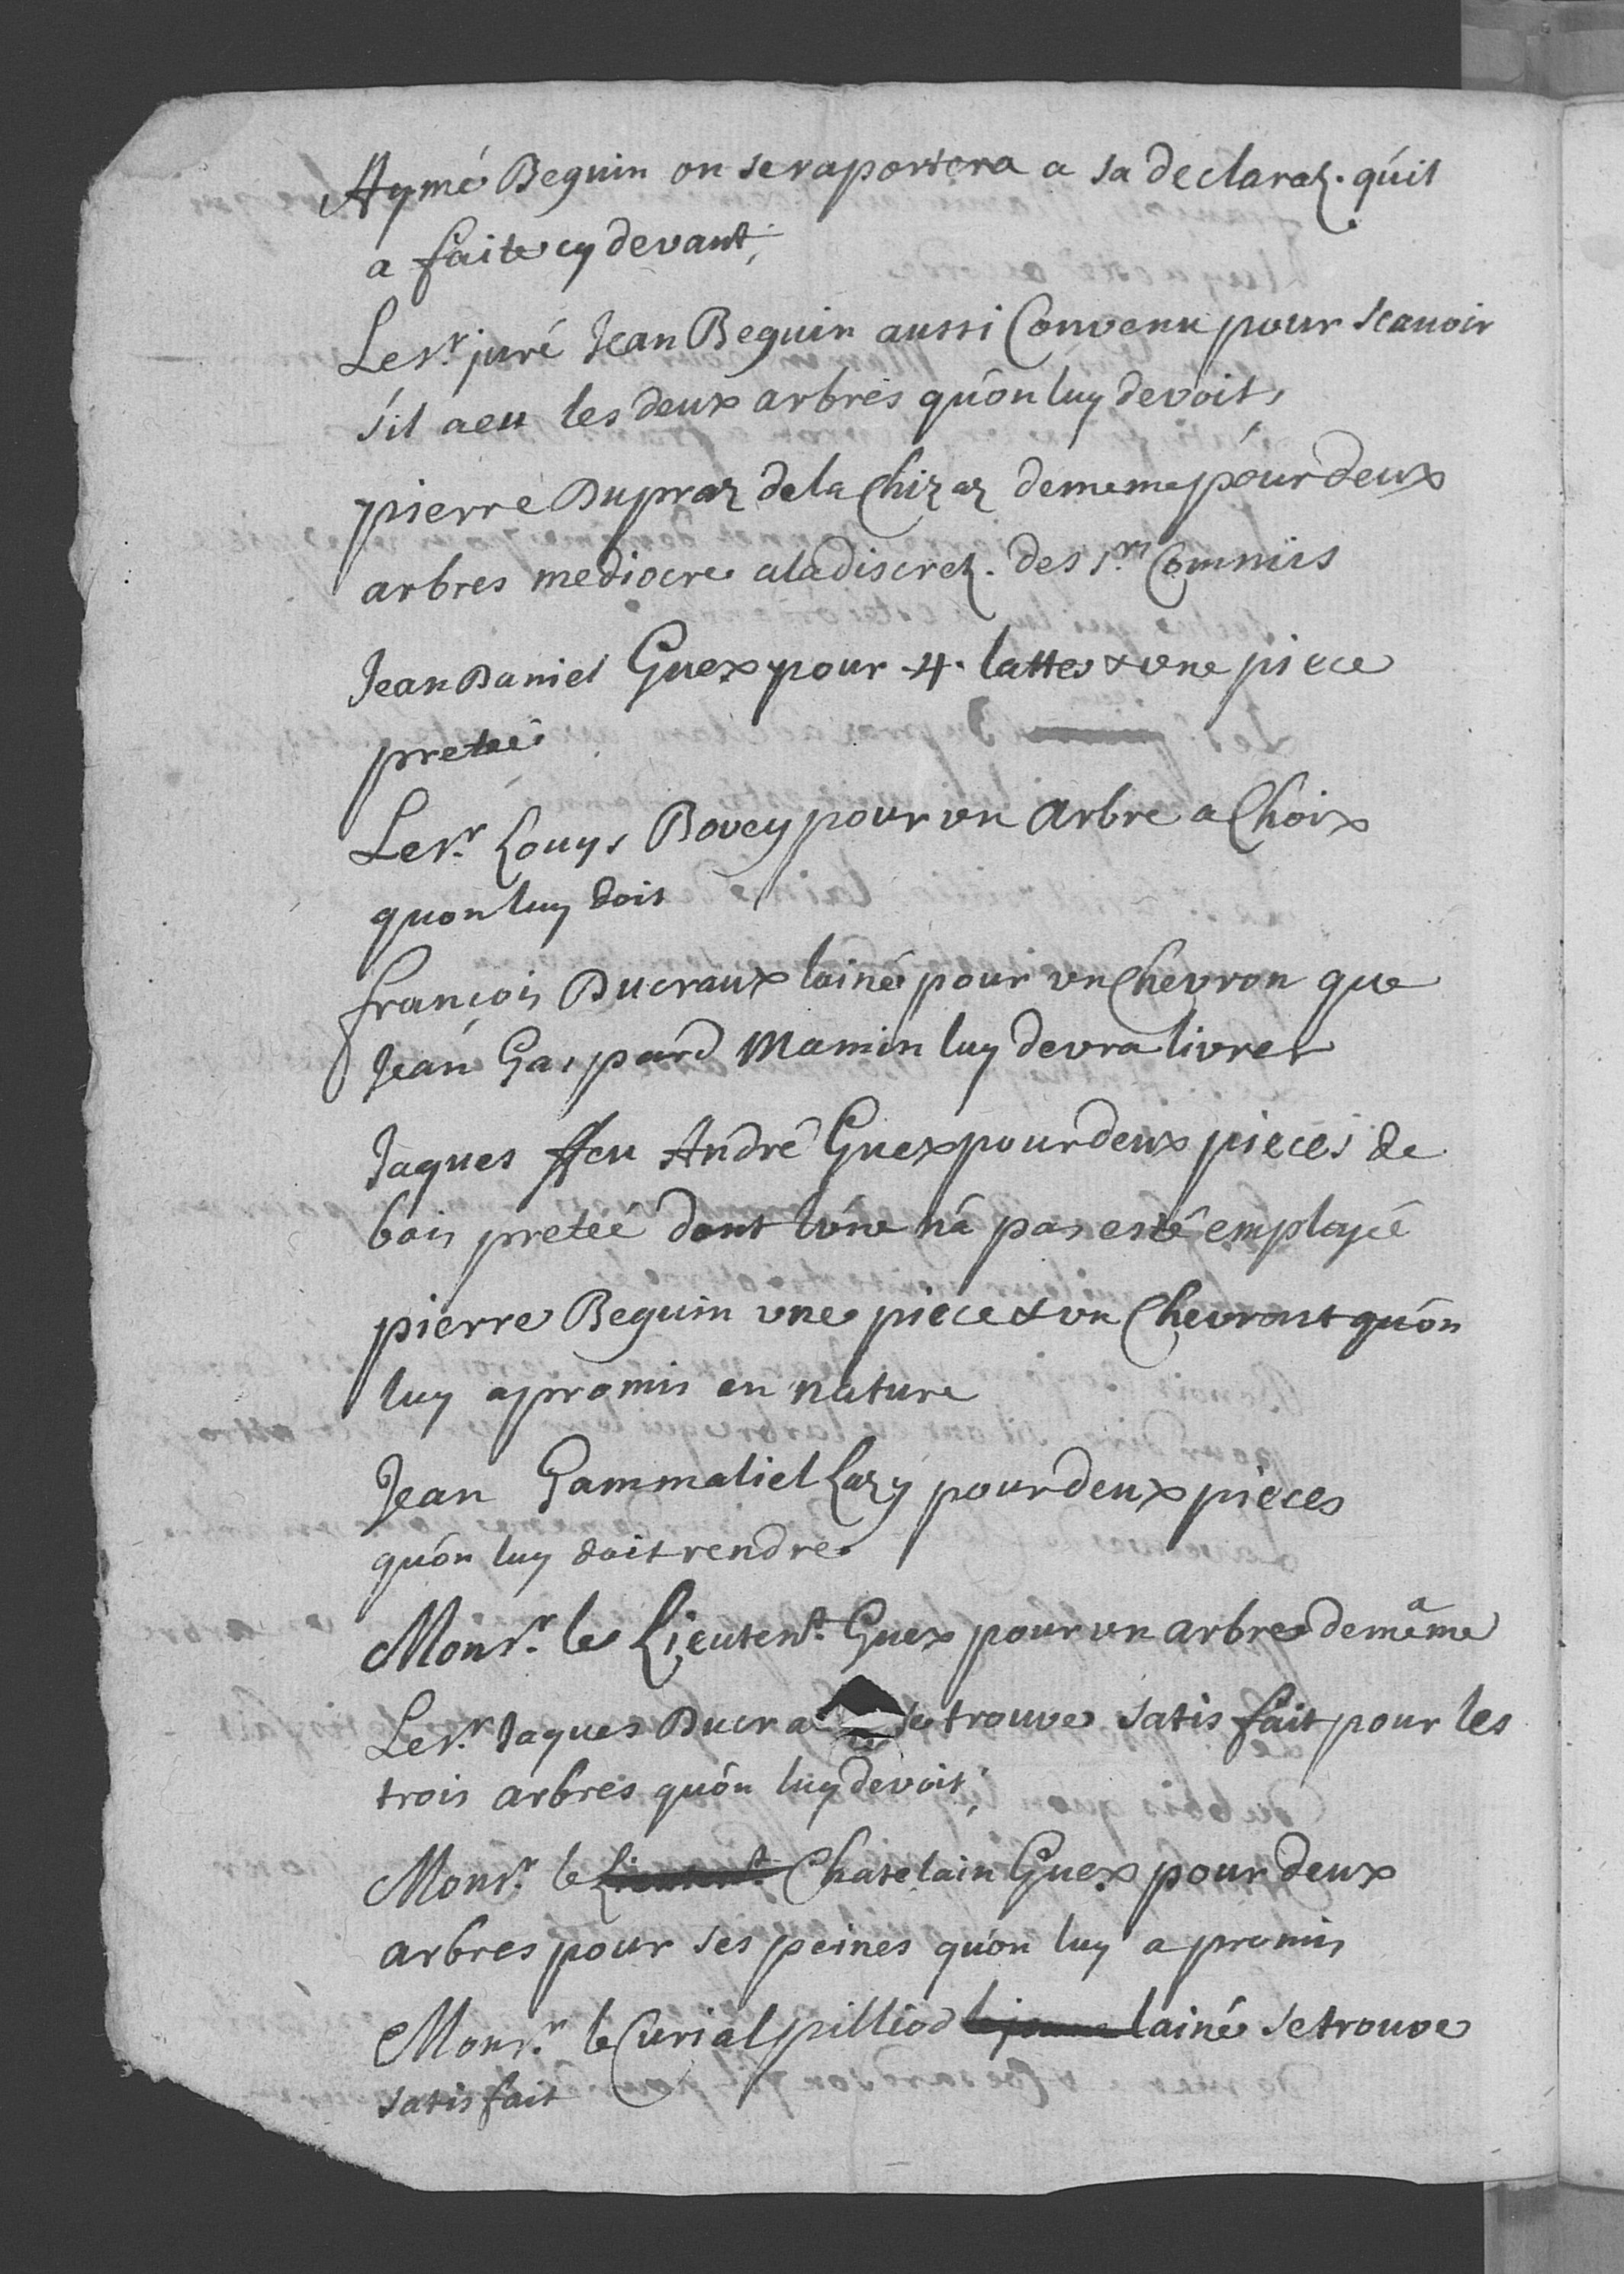 Aymé Beguin on se raportera a sa declaraõn. qu'il
a faite cy devant;
Le Sr. juré Jean Beguin aussi Convenu pour scavoir
s'il a eu les deux arbres qu'on luy devoit,
pierre Dupraz de la Chizaz de meme pour deux
arbres mediocre a la discreõn. des Srs. Commis
Jean Daniel Guex pour .4. lattes & une piece
pretée
Le Sr. Louys Bovey pour un arbre a Choix
quon luy doit
françois Ducraux lainé pour un Chevron que
Jean Gaspard Mamin luy devra livrer
Jaques ffeu André Guex pour deux pieces de
bois pretéé dont lúne n'a pas esté employéé
pierre Beguin une piece & un Chevront qu'on
luy a promis en nature
Jean Gammaliel Lazy pour deux pieces
qu'on luy doit rendre
Monsr. le Lieutent. Guex pour un arbre de même
Le Sr. Jaques Ducra se trouve satisfait pour les
trois arbres qu'on luy devoit;
Monsr. le Lieutent. Chatelain Guex pour deux
arbres pour ses peines qu'on luy a promis
Monsr. le Curial pilliod le jeune lainé se trouve
satisfait